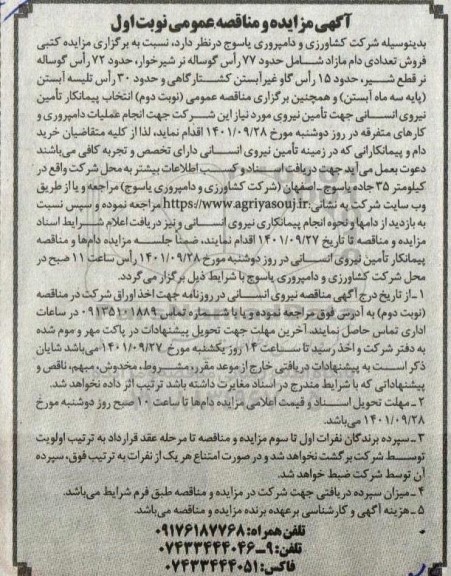 آگهی مزایده و مناقصه عمومی نوبت اول
بدینوسیله شرکت کشاورزی و دامپروری یاسوج درنظر دارد، نسبت به برگزاری مزایده کتبی
فروش تعدادی دام مازاد شامل حدود ۷۷ رأس گوساله نر شیرخوار، حدود ۷۲ رأس گوساله
نر قطع شیر، حدود ۱۵ رأس گاو غیرآبستن کشتارگاهی و حدود ۳۰ رأس تلیسه آبستن
(پایه سه ماه آبستن) و همچنین برگزاری مناقصه عمومی (نوبت دوم) انتخاب پیمانکار تأمین
نیروی انسانی جهت تأمین نیروی مورد نیاز این شرکت جهت انجام عملیات دامپروری و
کارهای متفرقه در روز دوشنبه مورخ ۱۴۰۱/۰۹/۲۸ اقدام نماید، لذا از کلیه متقاضیان خرید
دام و پیمانکارانی که در زمینه تأمین نیروی انسانی دارای تخصص و تجربه کافی می‌باشند
دعوت بعمل می‌آید جهت دریافت اسناد و کسب اطلاعات بیشتر به محل شرکت واقع در
کیلومتر ۳۵ جاده یاسوج ـ اصفهان (شرکت کشاورزی و دامپروری یاسوج) مراجعه و یا از طریق
وب سایت شرکت به نشانی: https://www.agriyasouj.ir مراجعه نموده و سپس نسبت
به بازدید از دامها و نحوه انجام پیمانکاری نیروی انسانی و نیز دریافت اعلام شرایط اسناد
مزایده و مناقصه تا تاریخ ۱۴۰۱/۰۹/۲۷ اقدام نمایند، ضمناً جلسه مزایده دام‌ها و مناقصه
پیمانکار تأمین نیروی انسانی در روز دوشنبه مورخ ۱۴۰۱/۰۹/۲۸ رأس ساعت ۱۱ صبح در
محل شرکت کشاورزی و دامپروری یاسوج با شرایط ذیل برگزار می‌گردد.
۱ـ از تاریخ درج آگهی مناقصه نیروی انسانی در روزنامه جهت اخذ اوراق شرکت در مناقصه
(نوبت دوم) به آدرس فوق مراجعه نموده و یا با شماره تماس ۰۹۱۳۵۱۰۱۸۸۹ در ساعات
اداری تماس حاصل نمایند. آخرین مهلت جهت تحویل پیشنهادات در پاکت مهر و موم شده
به دفتر شرکت و اخذ رسید تا ساعت ۱۴ روز یکشنبه مورخ ۱۴۰۱/۰۹/۲۷ می‌باشد شایان
ذکر است به پیشنهادات دریافتی خارج از موعد مقرر، مشروط، مخدوش، مبهم، ناقص و
پیشنهادانی که با شرایط مندرج در اسناد مغایرت داشته باشد ترتیب اثر داده نخواهد شد.
۲ـ مهلت تحویل اسناد و قیمت اعلامی مزایده دام‌ها تا ساعت ۱۰ صبح روز دوشنبه مورخ
۱۴۰۱/۰۹/۲۸ می‌باشد.
۳ـ سپرده برندگان نفرات اول تا سوم مزایده و مناقصه تا مرحله عقد قرارداد به ترتیب اولویت
توسط شرکت برگشت نخواهد شد و در صورت امتناع هر یک از نفرات به ترتیب فوق، سپرده
آن توسط شرکت ضبط خواهد شد.
۴ـ میزان سپرده دریافتی جهت شرکت در مزایده و مناقصه طبق فرم شرایط می‌باشد.
۵ـ هزینه آگهی و کارشناسی برعهده برنده مزایده و مناقصه می‌باشد.
تلفن همراه: ۰۹۱۷۶۱۸۷۷۶۸
تلفن: ۹ـ۰۷۴۳۳۴۴۴۰۴۶
فاکس: ۰۷۴۳۳۴۴۴۰۵۱